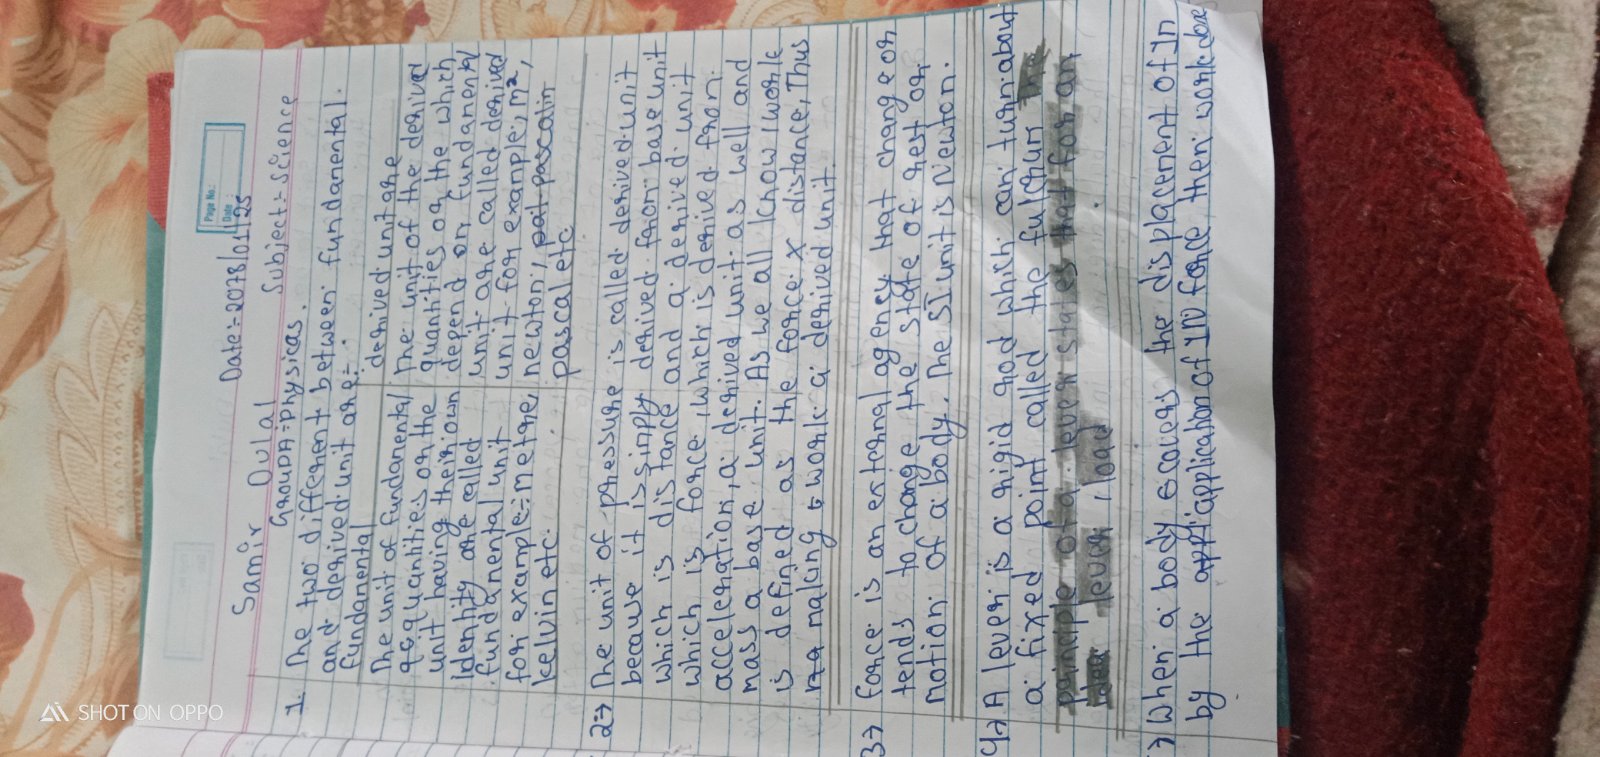 Page No.:
Date :
Date:-2078/01/25
Samir Dulal Subject:-Science
GroupA:-physicas.
1. The two different between fundamental
and derived unit are:-
fundamental
derived unit are
The unit of fundamental
quantities or the
unit having their own
identity are called
fundamental unit
for example:- metere,
kelvin etc.
The unit of the derived
quantities or the which
depend on fundamental
unit are called derived
unit for example; m²,
newton, pascain
pascal etc.
2→ The unit of pressure is called derived unit
beause it is simply derived from base unit
which is distance and a derived unit
which is force, which is derived from
acceleration, a derived unit as well and
mass a base unit. As we all know work
is defined as the force x distance, Thus
making work a derived unit.
3→ Force is an external agency that change or
tends to change the state of rest or
motion of a body. The SI unit is Newton.
4→ A lever is a rigid rod which can turn about
a fixed point called the fulcrum
priniple of a lever states that for an
lever, load
7 When a body ecovers the displacement of 1n
by the application of 1N force then work done
SHOT ON OPPO